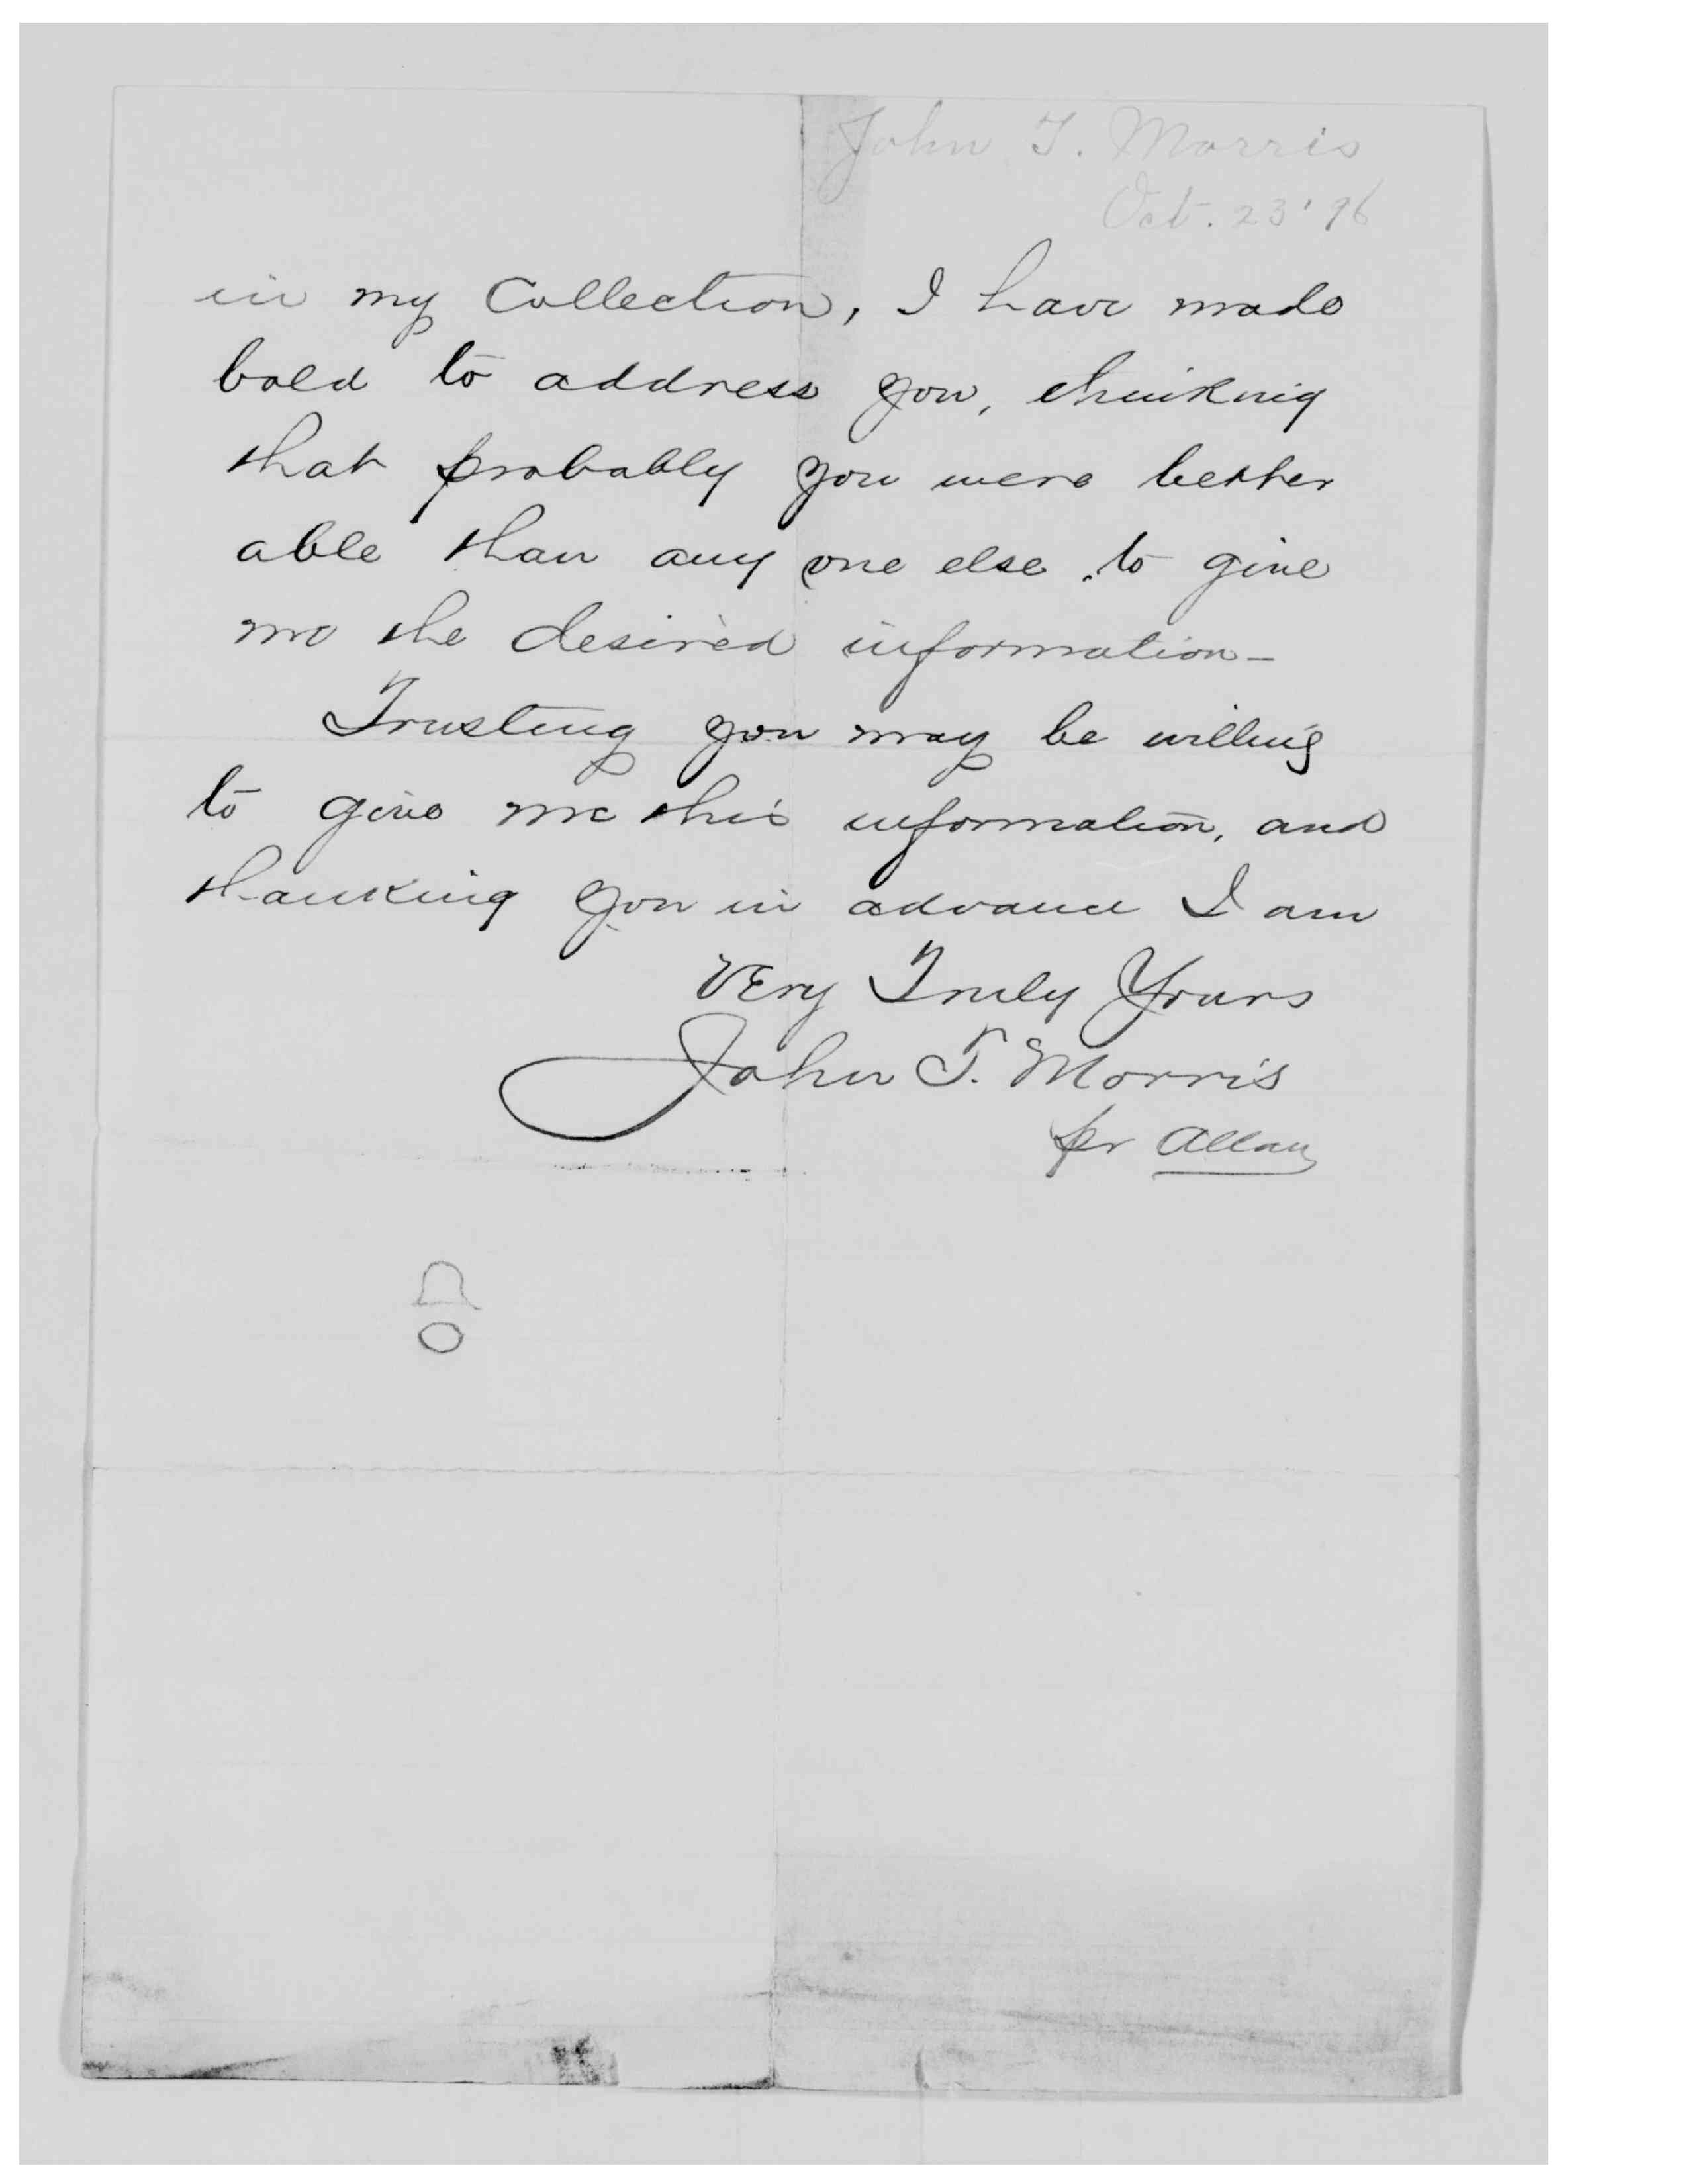 John T. Morris
Oct. 23 '96
in my Collection, I have made
bold to address you, thinking
that probably you were better
able than any one else to give
me the desired information -
Trusting you may be willing
to give me this information, and
thanking you in advance I am
Very Truly Yours
John T. Morris
pr Allan